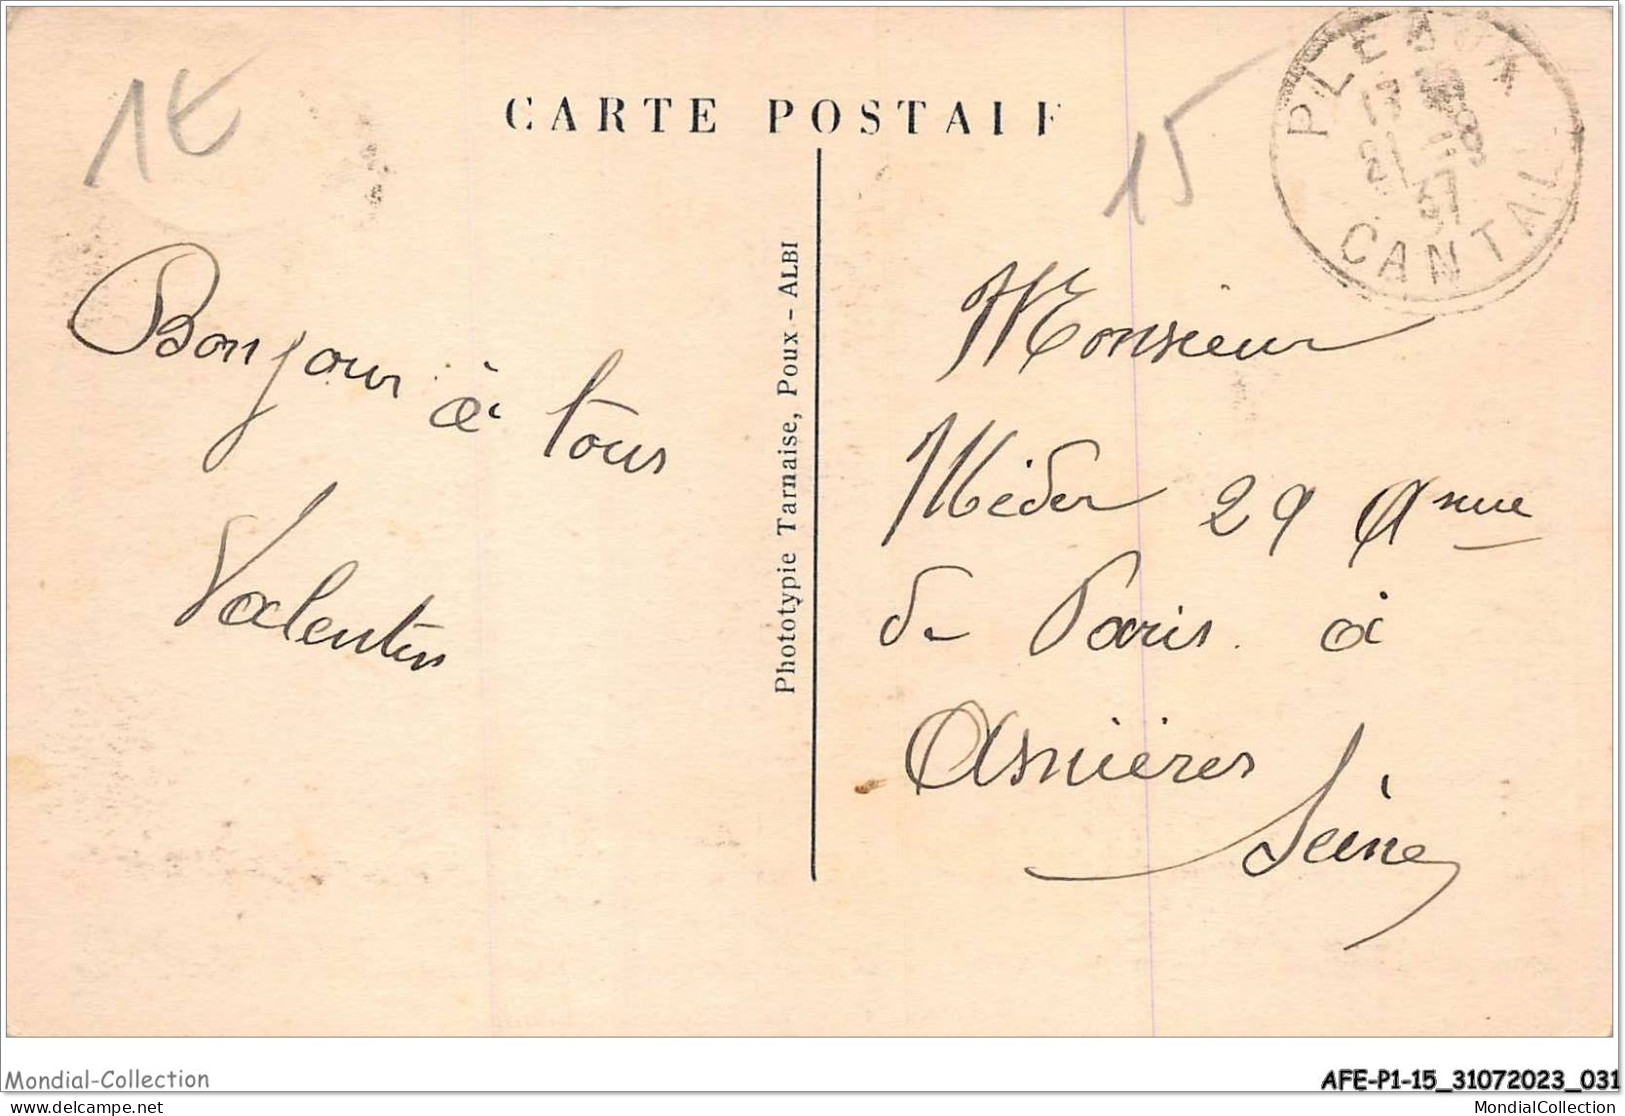 1€
CARTE POSTALE
15
PLEAUX
21 -8
37
CANTAL
Bonjour à tous
Valentin
Phototypie Tarnaise, Poux - ALBI
Monsieur
Méder 29 Avnue
de Paris à
Asnières
Seine
Mondial-Collection
AFE-P1-15_31072023_031
delcampe.net
MondialCollection